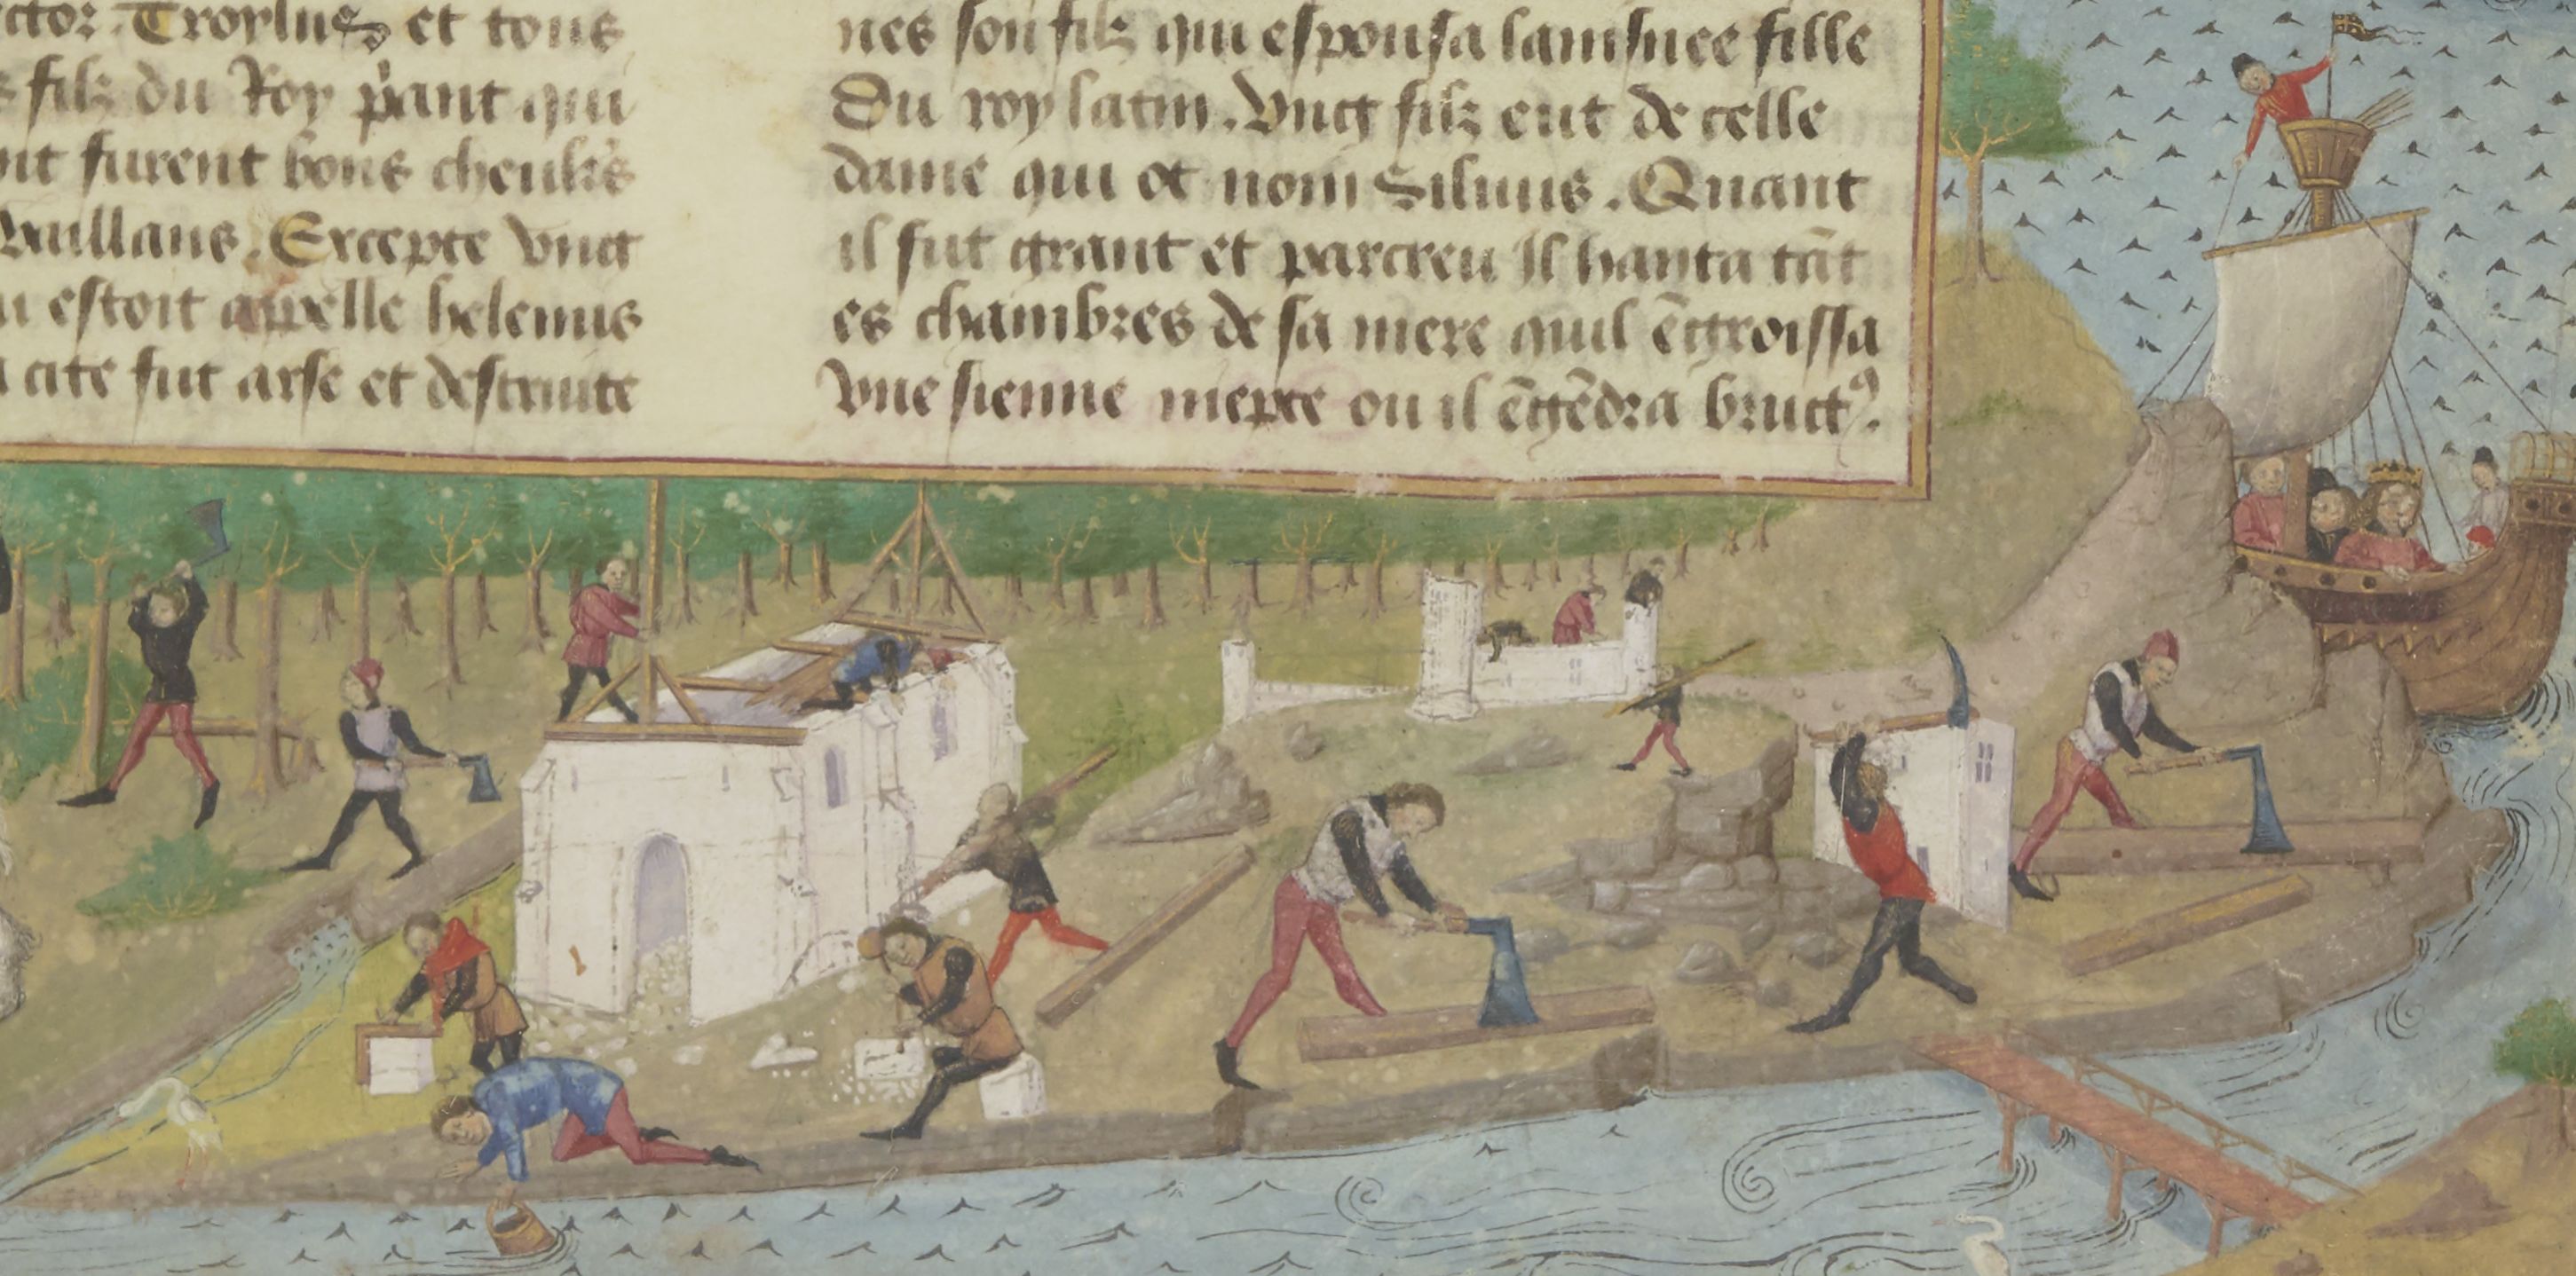 ctor. Troylus et tous
s filz du Roy p'ant qui
nt furent bons cheuls
Vaillans. Excepte vng
u estoit appelle helenus
a cite fut arse et destruite
nes son filz qui espousa lainsnee fille
Du roy latin. Vng filz eut de celle
dame qui ot nom Siluius. Quant
il fut grant et parcreu Il hanta tāt
es chambres de sa mere quil ēgroissa
vne sienne niepce ou il ēgēdra brutꝰ.